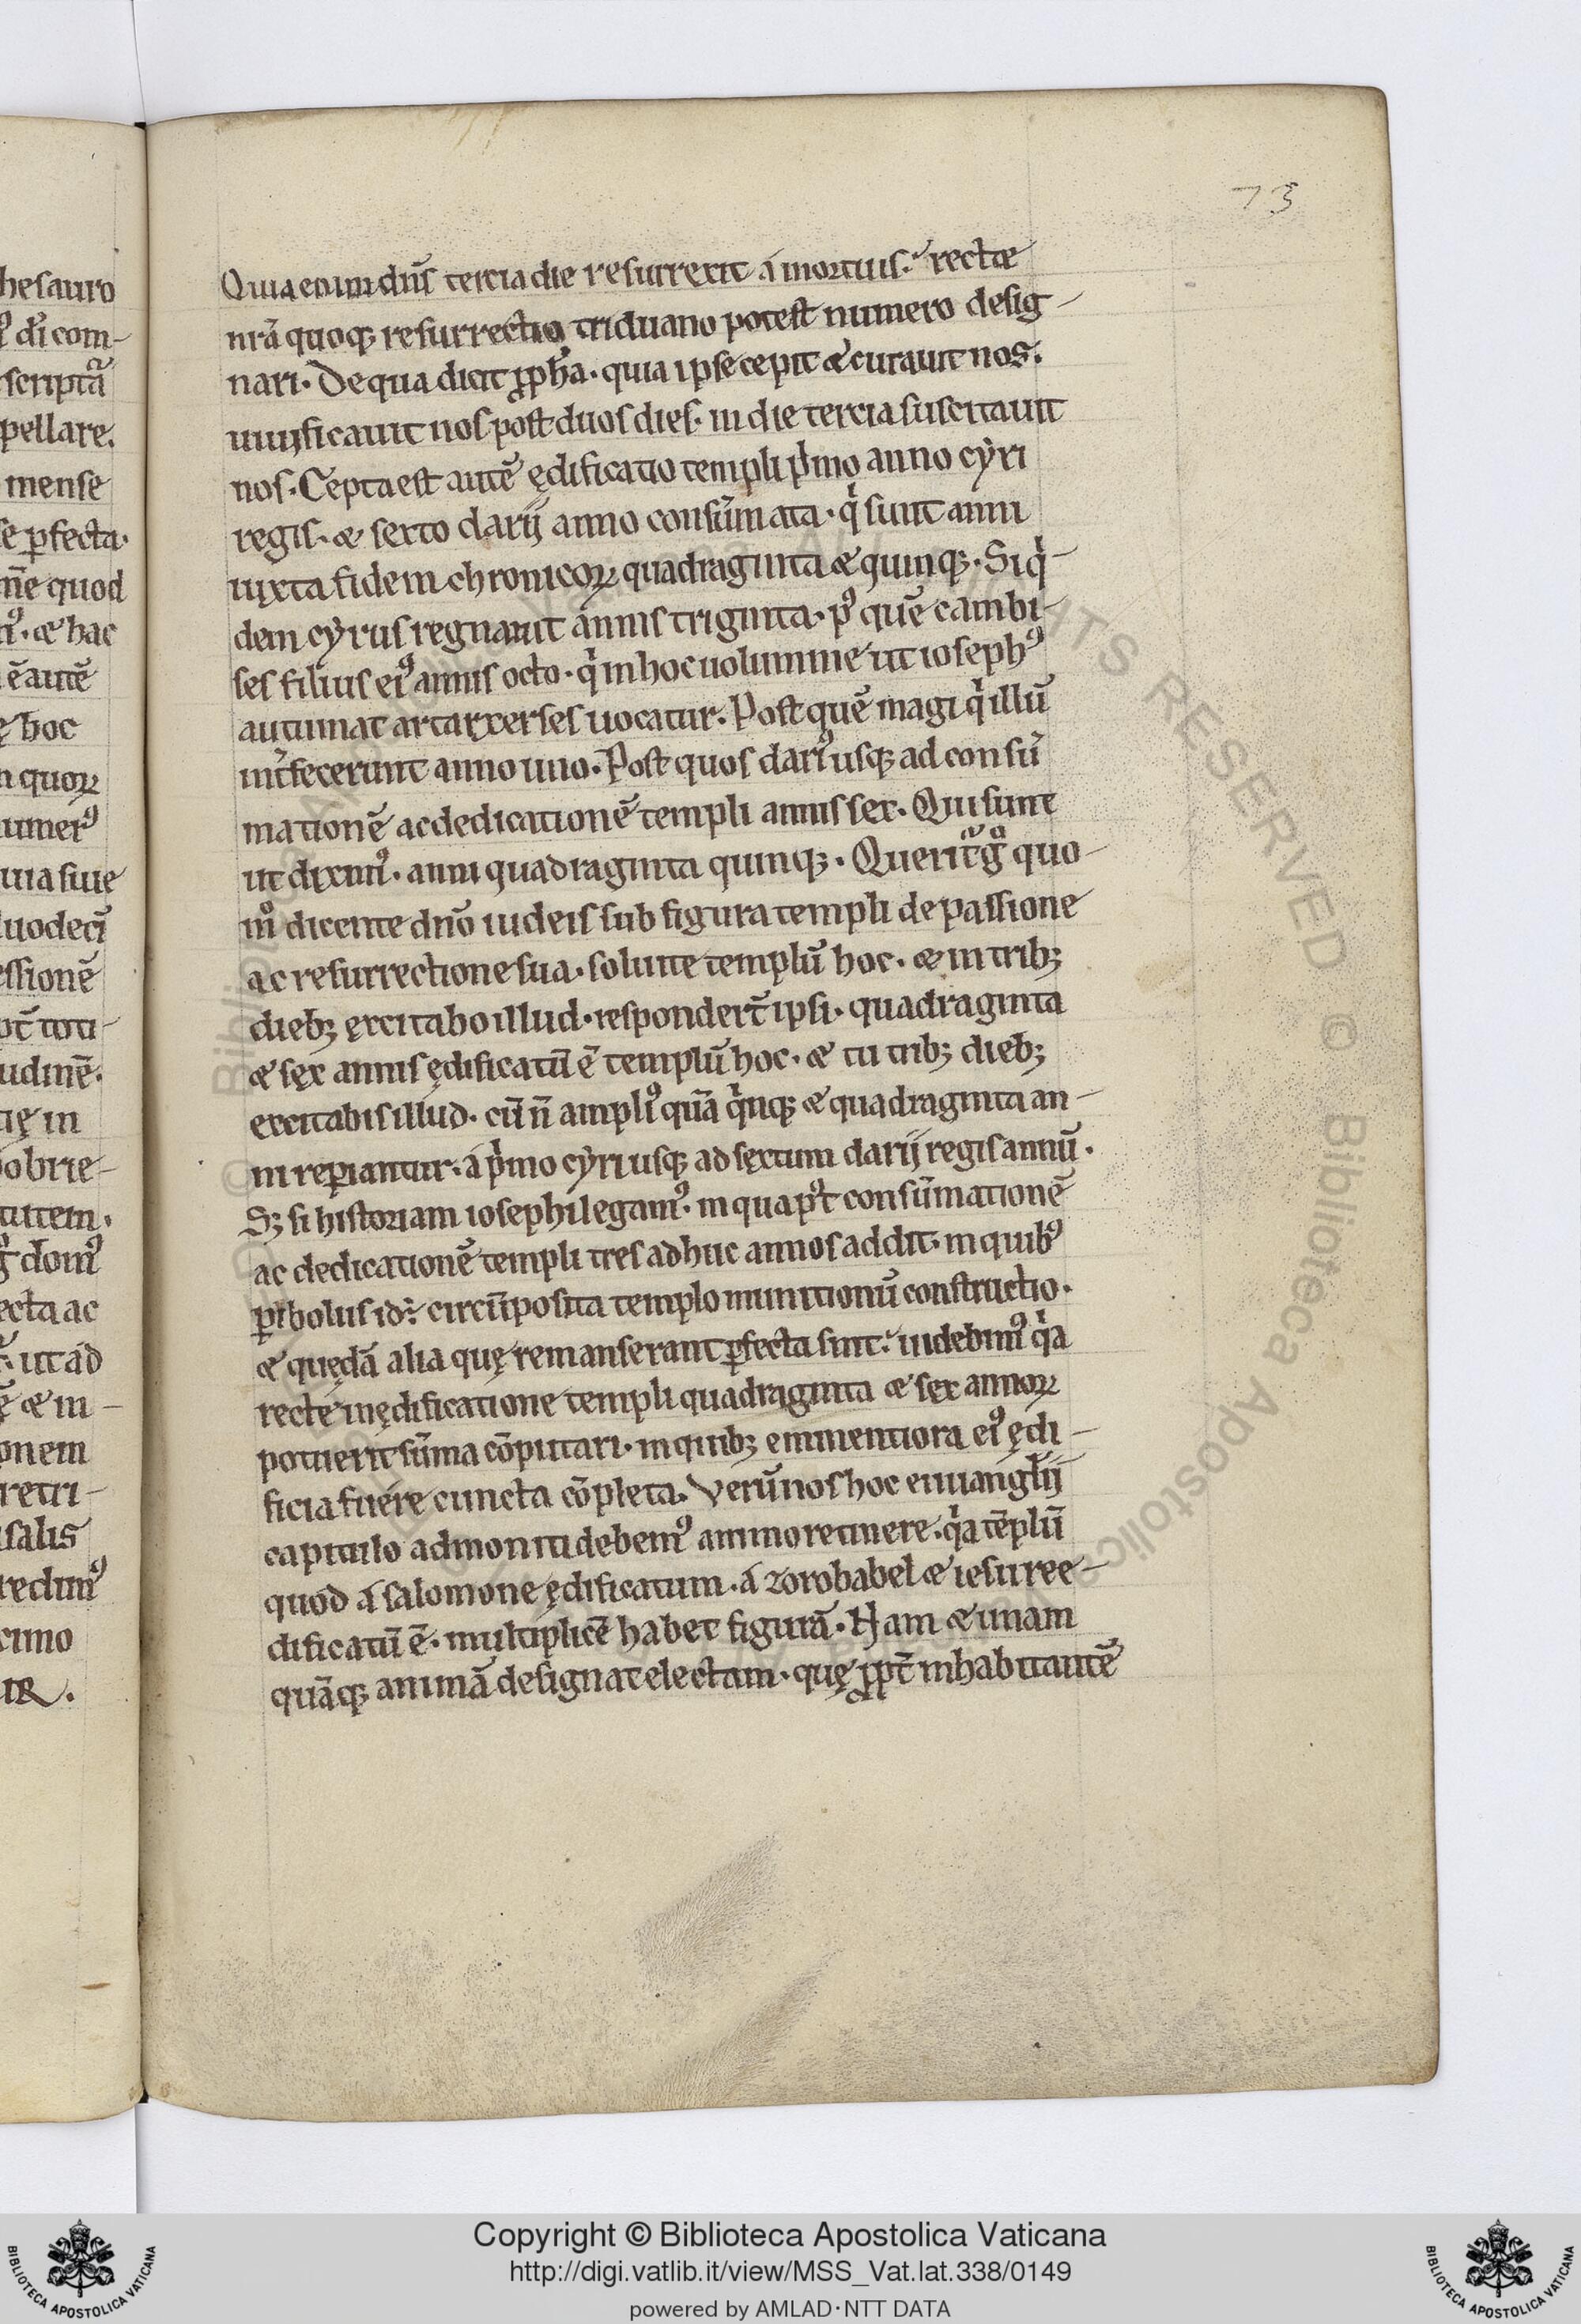 73
hesauro
dī com-
scriptā
pellare.
mense
se ꝑfecta.
n̄e quod
n᷒. & hac
ē autē
ę hoc
n quoꝝ
umer᷒
uia siue
luodecī
ssionē
ot̄ toti-
udinē.
tię in
obrie-
tutem.
g̊ dom᷒
ecta ac
ut ad
ę & in-
onem
retri-
salis
redim᷒
cimo
ur.
Quia enim dn̄s tercia die resurrexit á mortuis. rectæ
nrā quoq; resurrectio triduano potest numero desig-
nari. De qua dicit ꝓph̄a. quia ipse cepit & curauit nos.
uiuificauit nos post duos dies. in die tercia suscitauit
nos. Cepta est autē ędificatio templi pⁱmo anno cyri
regis. & sexto darij anno consūmata. qⁱ sunt anni
iuxta fidem chronicoꝝ quadraginta & quinq;. Siqⁱ-
dem cyrus regnauit annis triginta. p᷒ quē cambi-
ses filius ei᷒ annis octo. qⁱ in hoc uolumine ut ioseph᷒
autumat artarxerses uocatur. Post quē magi qⁱ illū
int̄fecerunt anno uno. Post quos dari᷒ usq; ad consū
mationē ac dedicationē templi annis sex. Qui sunt
ut dixim᷒. anni quadraginta quinq;. Querit̃ g̊ quo-
m̊ dicente dn̄o iudeis sub figura templi de passione
ac resurrectione sua. soluite templū hoc. & in trib;
dieb; excitabo illud. respondert̄ ipsi. quadraginta
& sex annis ędificatū ē templū hoc. & tu trib; dieb;
excitabis illud. cū n̄ ampli᷒ quā qⁱnq; & quadraginta an-
ni reꝑiantur. á pⁱmo cyri usq; ad sextum darij regis annū.
S; si historiam iosephi legam᷒. in qua p᷒t consūmationē
ac dedicationē templi tres adhuc annos addit. in quib᷒
ꝑibolus id÷ circūposita templo munitionū constructio.
& quędā alia quę remanserant ꝑfecta sint. uidebim᷒ qⁱa
recte in ędificatione templi quadraginta & sex annoꝝ
potuerit sūma cōputari. in quib; eminentiora ei᷒ ędi-
ficia fuere cuncta cōpleta. Verū nos hoc euuanglij
capitulo admoniti debem᷒ animo retinere. qⁱa tēplū
quod á salomone ędificatum. á zorobabel & iesu ree-
dificatū ē. multiplicē habet figurā. Nam & unam
quāq; animā designat electam. quę ꝓpt̄ inhabitantē
Copyright © Biblioteca Apostolica Vaticana
http://digi.vatlib.it/view/MSS_Vat.lat.338/0149
powered by AMLAD·NTT DATA